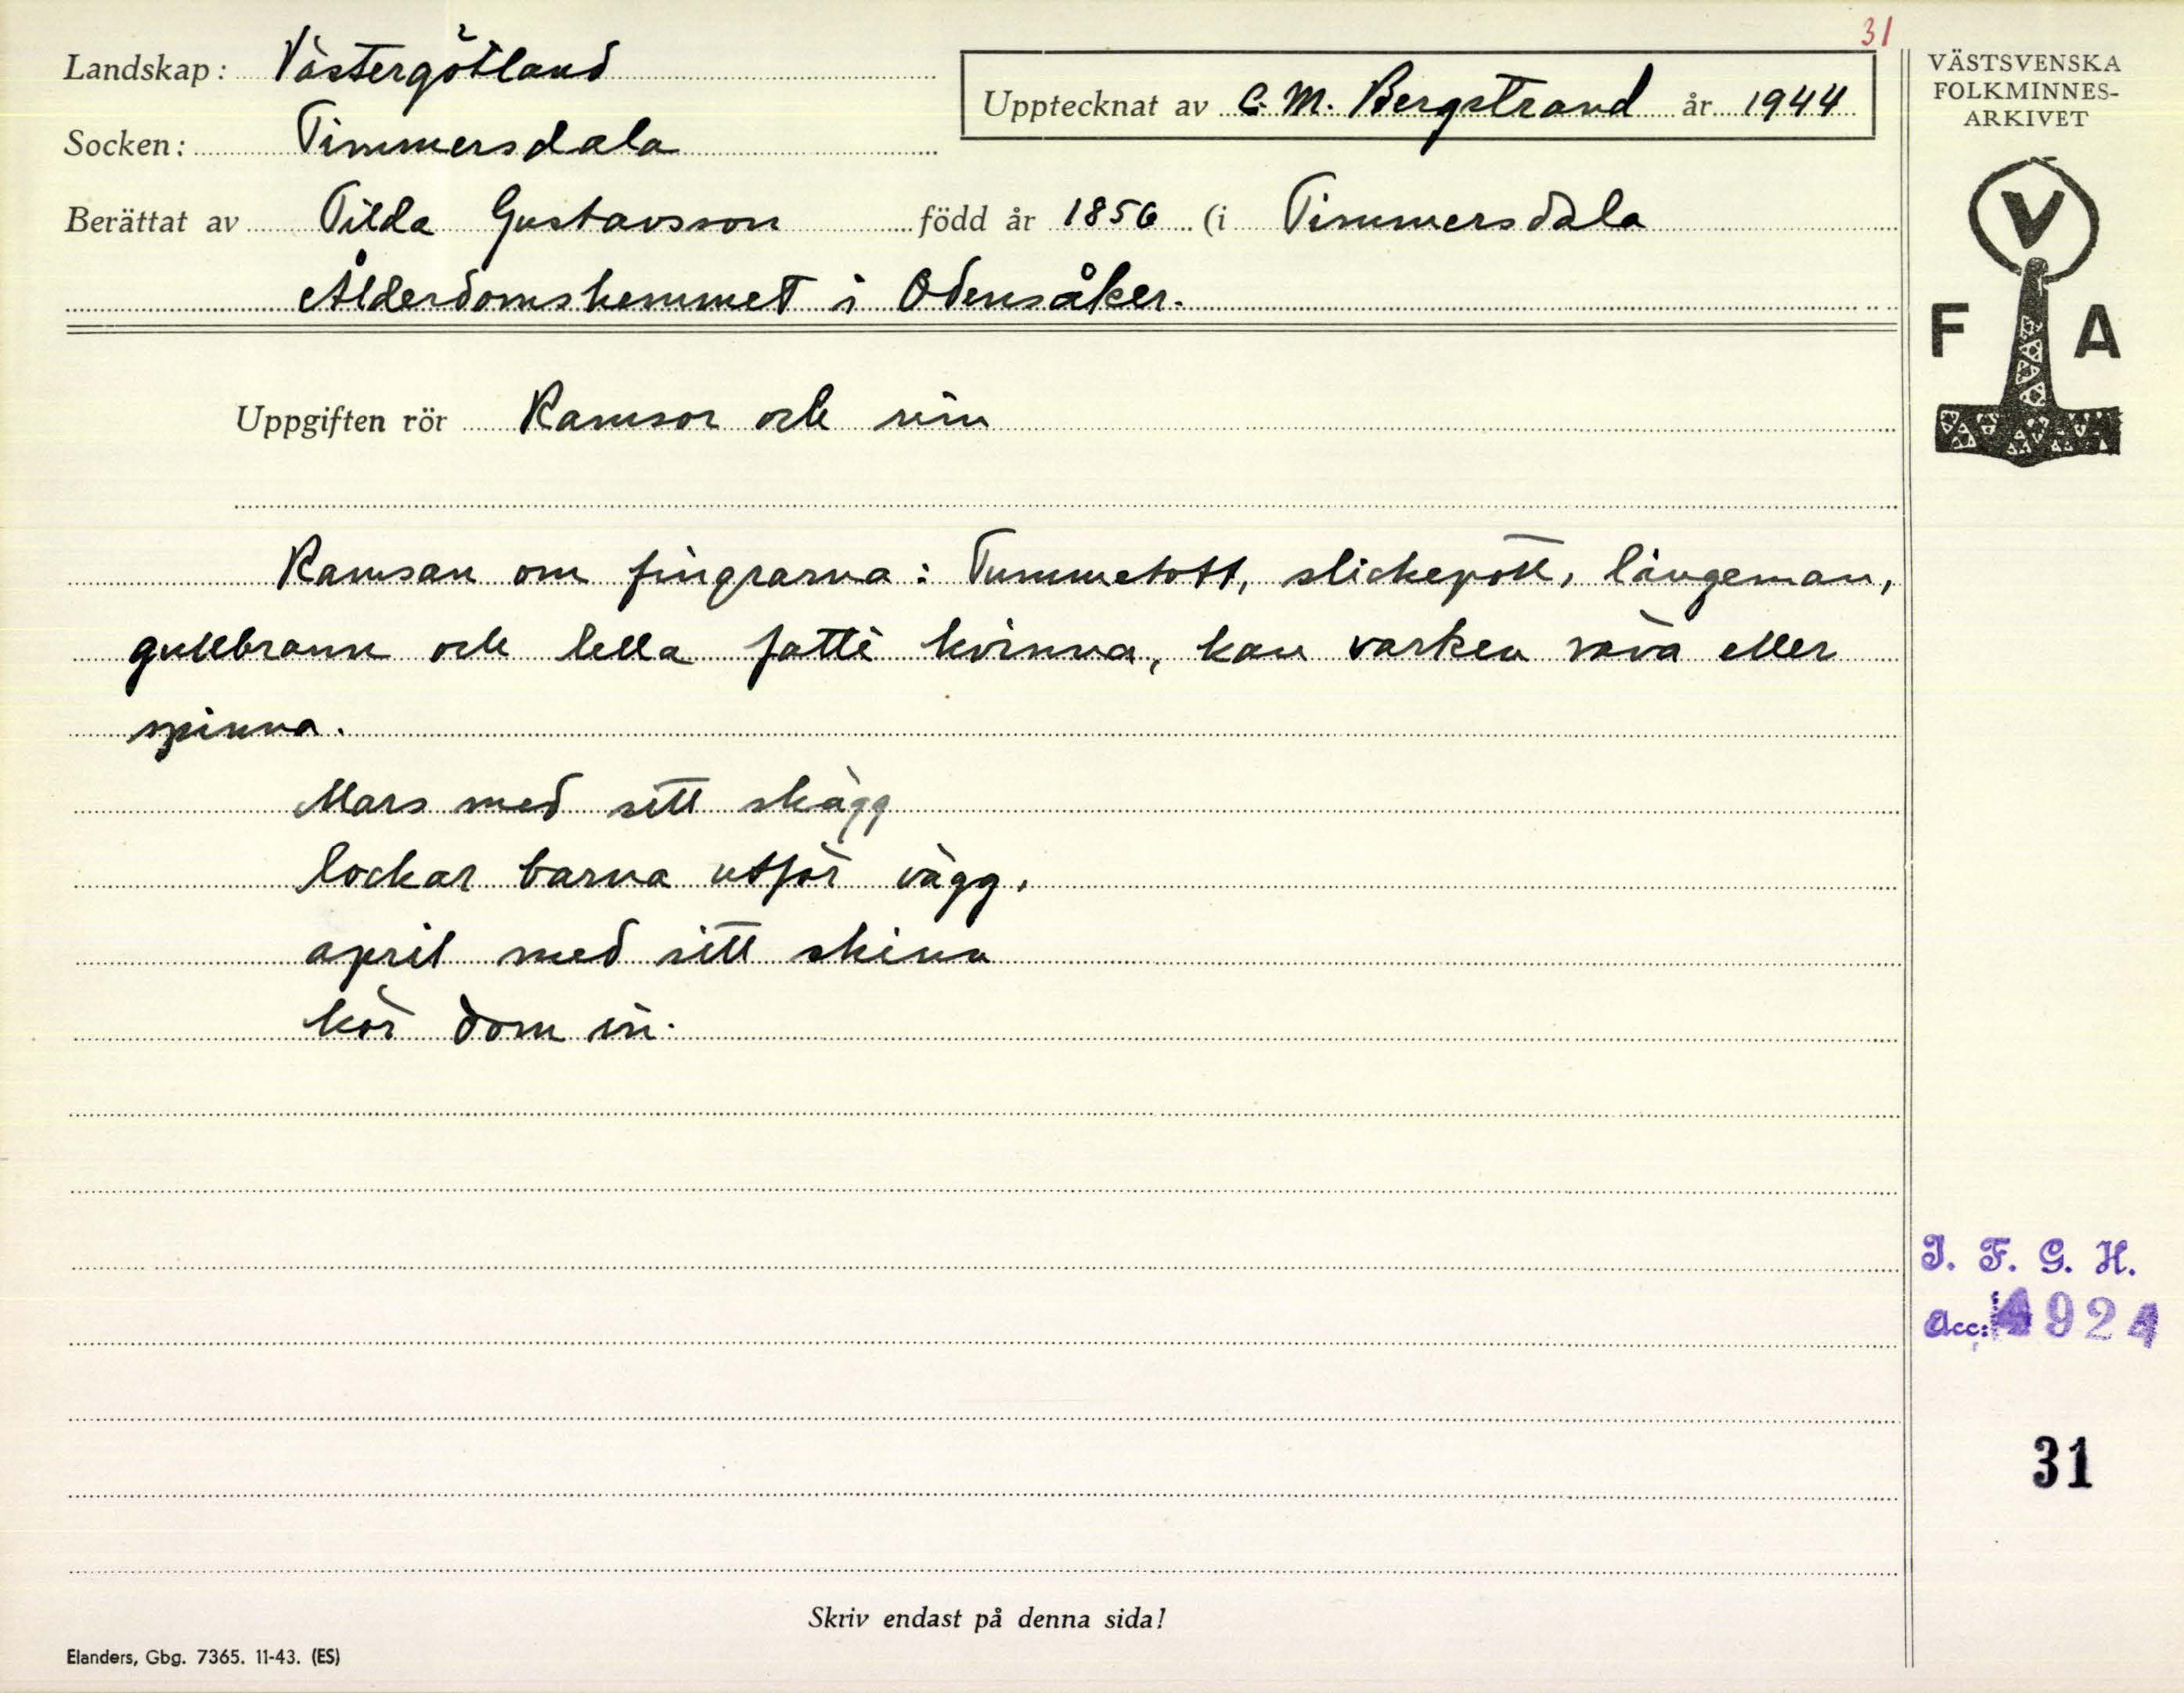 31
Landskap: Västergötland
Upptecknat av C. M. Bergstrand år 1944
Socken: Timmersdala
Berättat av Tilda Gustavsson född år 1856 (i Timmersdala
Ålderdomshemmet i Odensåker.
VÄSTSVENSKA
FOLKMINNES-
ARKIVET
V
F A
Uppgiften rör Ramsor och rim
Ramsan om fingrarna: Tummetott, slickepott, långeman,
gullbrann och lella fatti kvinna, kan varken väva eller
spinna.
Mars med sitt skägg
lockar barna utför vägg,
april med sitt skinn
kör dom in.
I. F. G. H.
Acc: 4924
31
Skriv endast på denna sida!
Elanders, Gbg. 7365. 11-43. (ES)